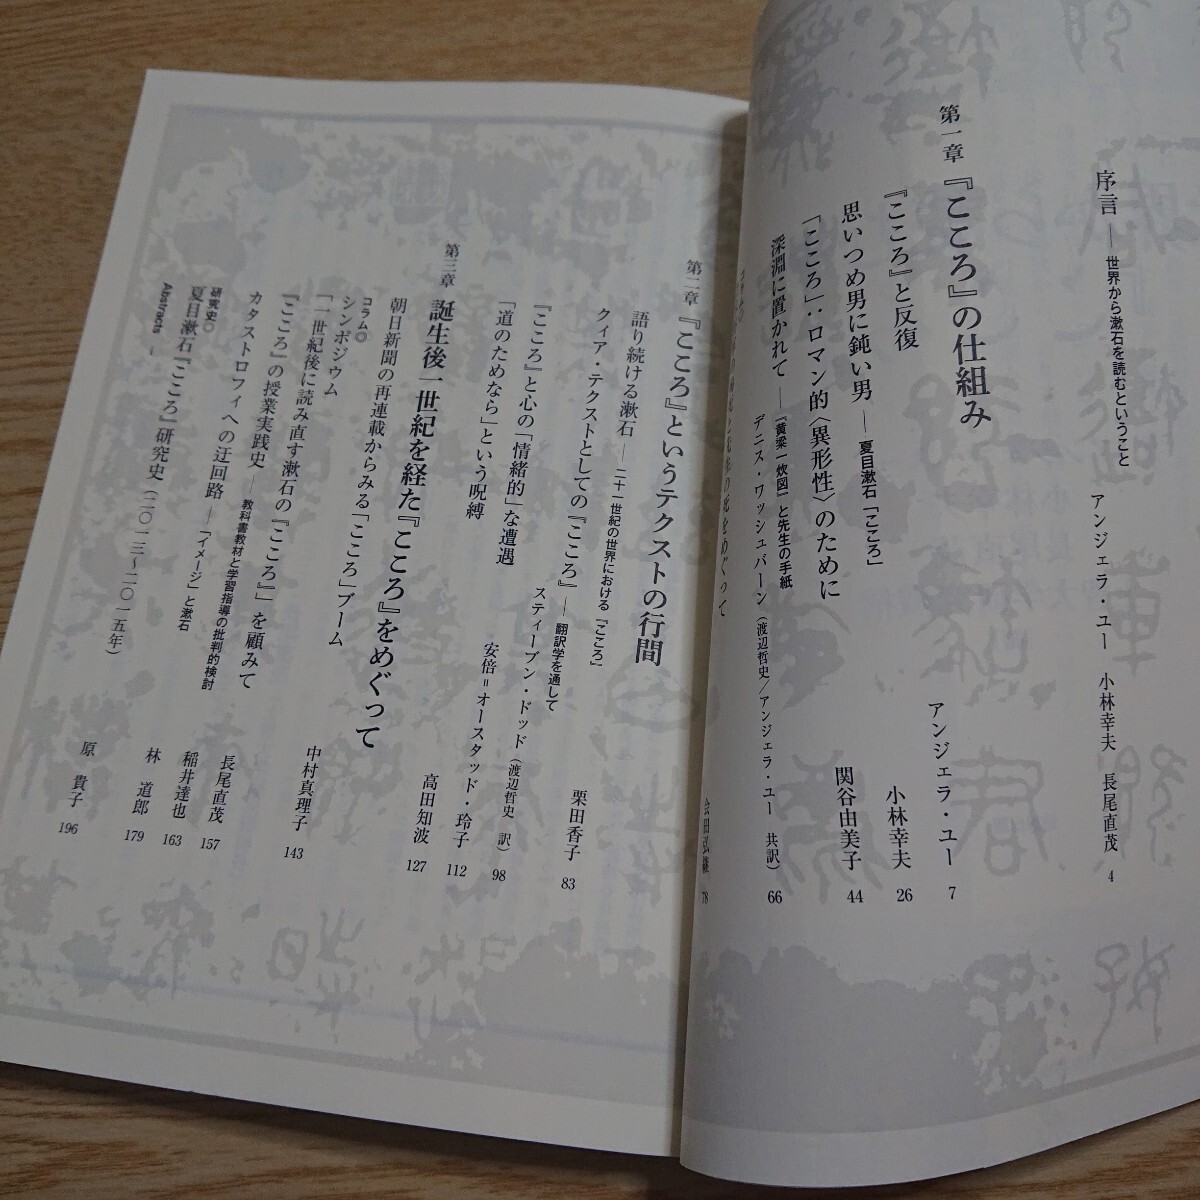 序言 ── 世界から漱石を読むということ
アンジェラ・ユー 小林幸夫 長尾直茂 4
第一章 『こころ』の仕組み
『こころ』と反復
アンジェラ・ユー 7
思いつめ男に鈍い男 ── 夏目漱石「こころ」
小林幸夫 26
「こころ」：ロマン的〈異形性〉のために
関谷由美子 44
深淵に置かれて ── 『黄粱一炊図』と先生の手紙
デニス・ワッシュバーン（渡辺哲史／アンジェラ・ユー 共訳） 66
コラム◎
死をめぐって
会田弘継 78
第二章 『こころ』というテクストの行間
語り続ける漱石 ── 二十一世紀の世界における『こころ』
栗田香子 83
クィア・テクストとしての『こころ』 ── 翻訳学を通して
スティーブン・ドッド（渡辺哲史 訳） 98
『こころ』と心の「情緒的」な遭遇
安倍＝オースタッド・玲子 112
「道のためなら」という呪縛
高田知波 127
第三章 誕生後一世紀を経た『こころ』をめぐって
朝日新聞の再連載からみる「こころ」ブーム
中村真理子 143
コラム◎
シンポジウム
「一世紀後に読み直す漱石の『こころ』」を顧みて
長尾直茂 157
『こころ』の授業実践史 ── 教科書教材と学習指導の批判的検討
稲井達也 163
カタストロフィへの迂回路 ── 「イメージ」と漱石
林 道郎 179
研究史◎
夏目漱石『こころ』研究史（二〇一三〜二〇一五年）
原 貴子 196
Abstracts